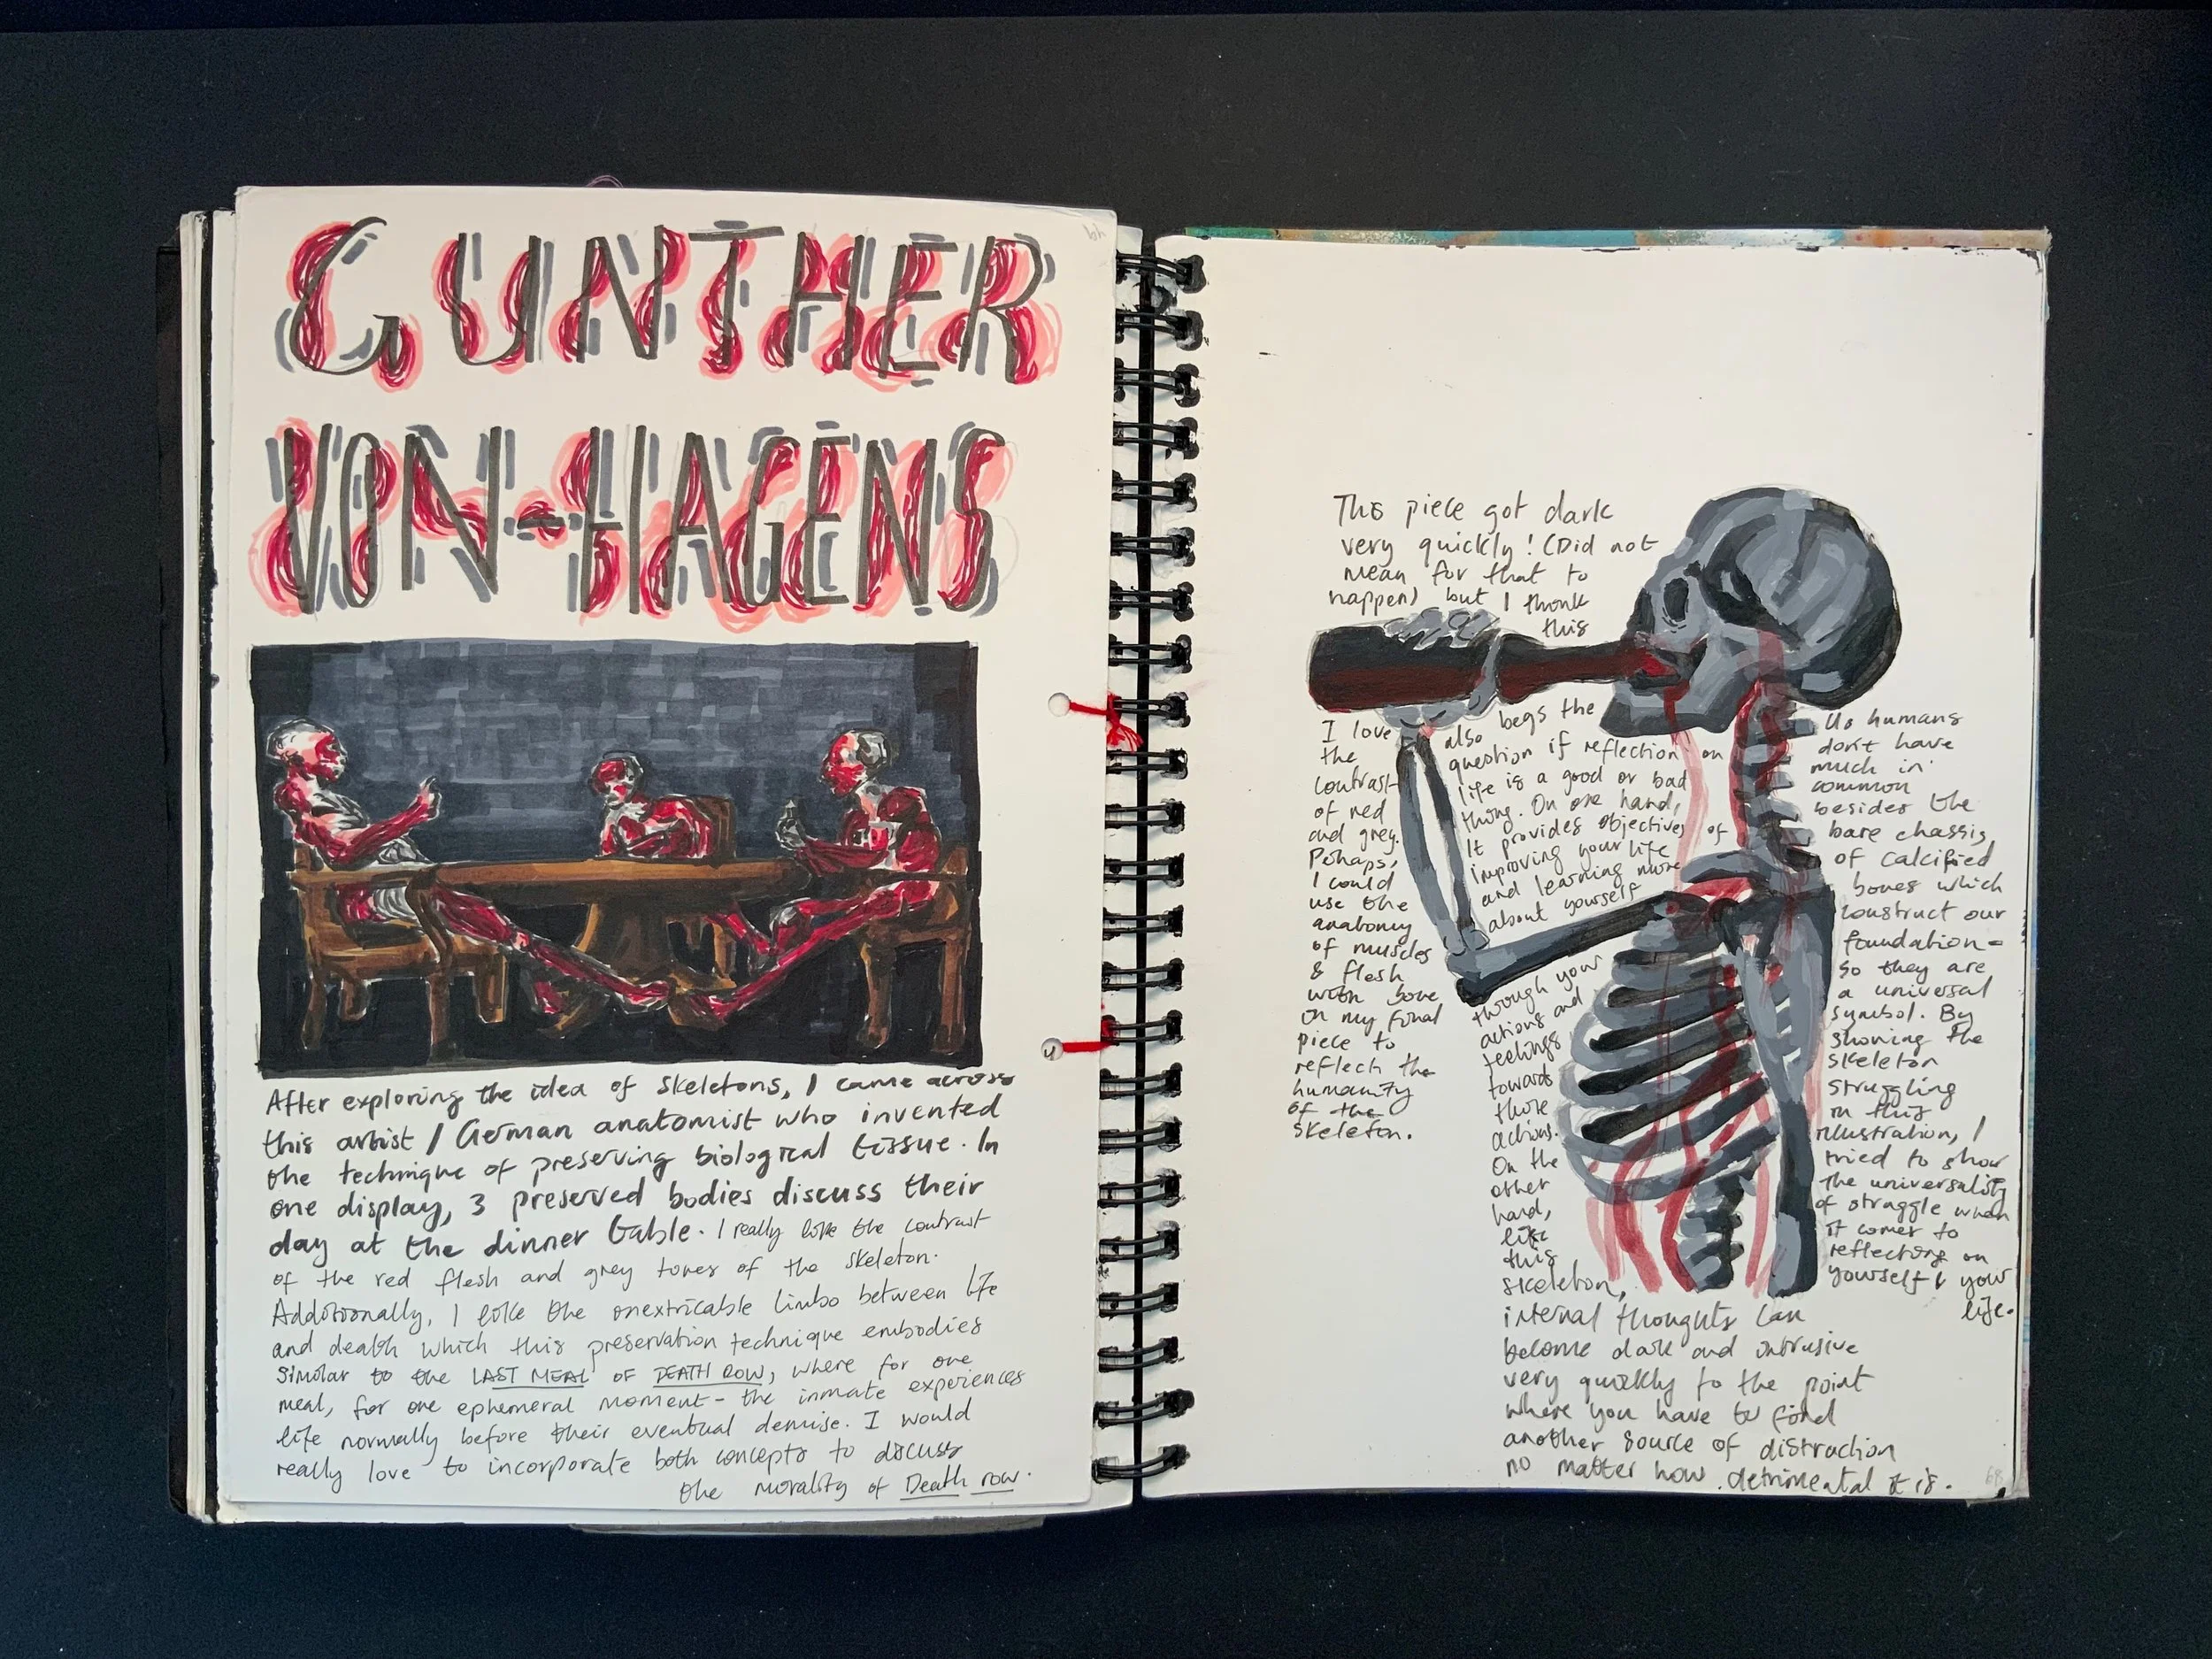 GUNTHER
VON-HAGENS
After exploring the idea of skeletons, I came across
this artist / German anatomist who invented
the technique of preserving biological tissue. In
one display, 3 preserved bodies discuss their
day at the dinner table. I really like the contrast
of the red flesh and grey tones of the skeleton.
Additionally, I like the inextricable limbo between life
and death which this preservation technique embodies
similar to the LAST MEAL OF DEATH ROW, where for one
meal, for one ephemeral moment - the inmate experiences
life normally before their eventual demise. I would
really love to incorporate both concepts to discuss
the morality of Death row.
This piece got dark
very quickly! (Did not
mean for that to
happen) but I think
this
also begs the
question if reflection on
life is a good or bad
thing. On one hand,
It provides objectives of
improving your life
and learning more
about yourself
through your
actions and
feelings
towards
those
actions.
On the
other
hand,
like
this
skeleton,
internal thoughts can
become dark and intrusive
very quickly to the point
where you have to find
another source of distraction
no matter how detrimental it is.
I love
the
contrast
of red
and grey.
Perhaps,
I could
use the
anatomy
of muscles
& flesh
with bone
in my final
piece to
reflect the
humanity
of the
skeleton.
Us humans
don't have
much in
common
besides the
bare chassis,
of calcified
bones which
construct our
foundation -
so they are
a universal
symbol. By
showing the
skeleton
struggling
in this
illustration, I
tried to show
the universality
of struggle when
it comes to
reflecting on
yourself & your
life.
68